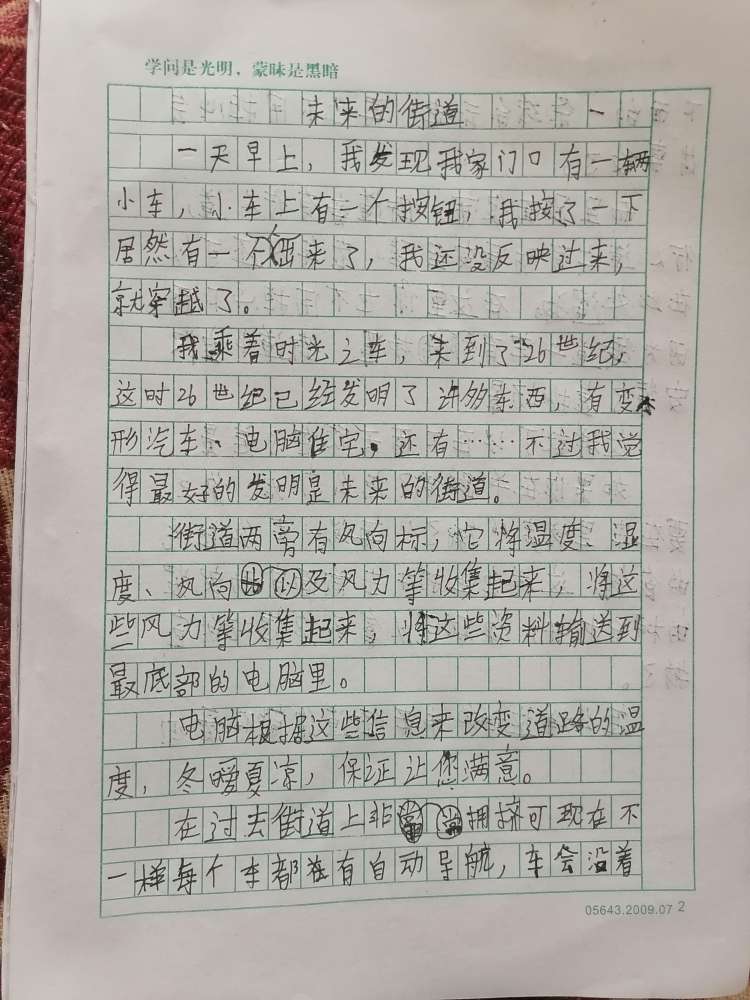 学问是光明，蒙昧是黑暗
未来的街道 一
一天早上，我发现我家门口有一辆
小车，小车上有一个按钮，我按了一下
居然有一不出来了，我还没反映过来，
就穿越了。
我乘着时光之车，来到了26世纪，
这时26世纪已经发明了许多东西，有变
形汽车、电脑住宅，还有……不过我觉
得最好的发明是未来的街道。
街道两旁有风向标，它将温度、湿
度、风向以及风力等收集起来，将这
些风力等收集起来，将这些资料输送到
最底部的电脑里。
电脑根据这些信息来改变道路的温
度，冬暖夏凉，保证让您满意。
在过去街道上非常拥挤可现在不
一样每个车都在有自动导航，车会沿着
05643.2009.07 2